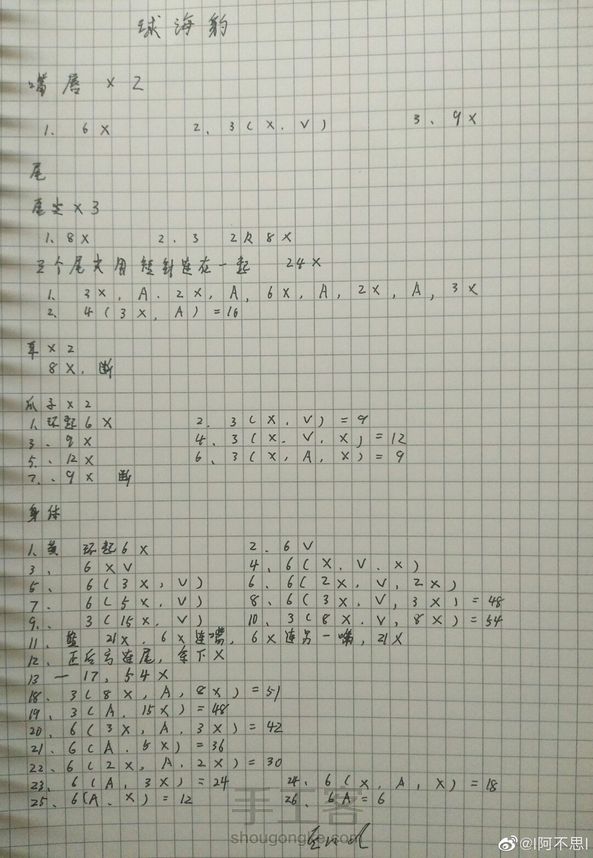 球海豹
嘴唇 × 2
1. 6X 2. 3(X.V) 3、9X
尾
尾尖×3
1. 8X 2. 3 2及8X
三个尾尖用短针连在一起 24X
1. 3X, A. 2X, A, 6X, A, 2X, A, 3X
2. 4(3X, A)=16
耳×2
8X, 断
爪子×2
1. 环起6X 2. 3(X, V)=9
3、9X 4、3(X, V, X)=12
5、12X 6、3(X, A, X)=9
7、9X 断
身体
1. 黄 环起6X 2. 6V
3、6XV 4、6(X, V, X)
5、6(3X, V) 6、6(2X, V, 2X)
7、6(5X, V) 8、6(3X, V, 3X)=48
9、3(15X, V) 10、3(8X, V, 8X)=54
11、蓝 21X, 6X连嘴, 6X连另一嘴, 21X
12、正后方连尾, 余下X
13 一 17, 54X
18、3(8X, A, 8X)=51
19、3(A, 15X)=48
20、6(3X, A, 3X)=42
21、6(A, 5X)=36
22、6(2X, A, 2X)=30
23、6(A, 3X)=24 24、6(X, A, X)=18
25、6(A, X)=12 26、6A=6
手工客
shougongke.com
@|阿不思|